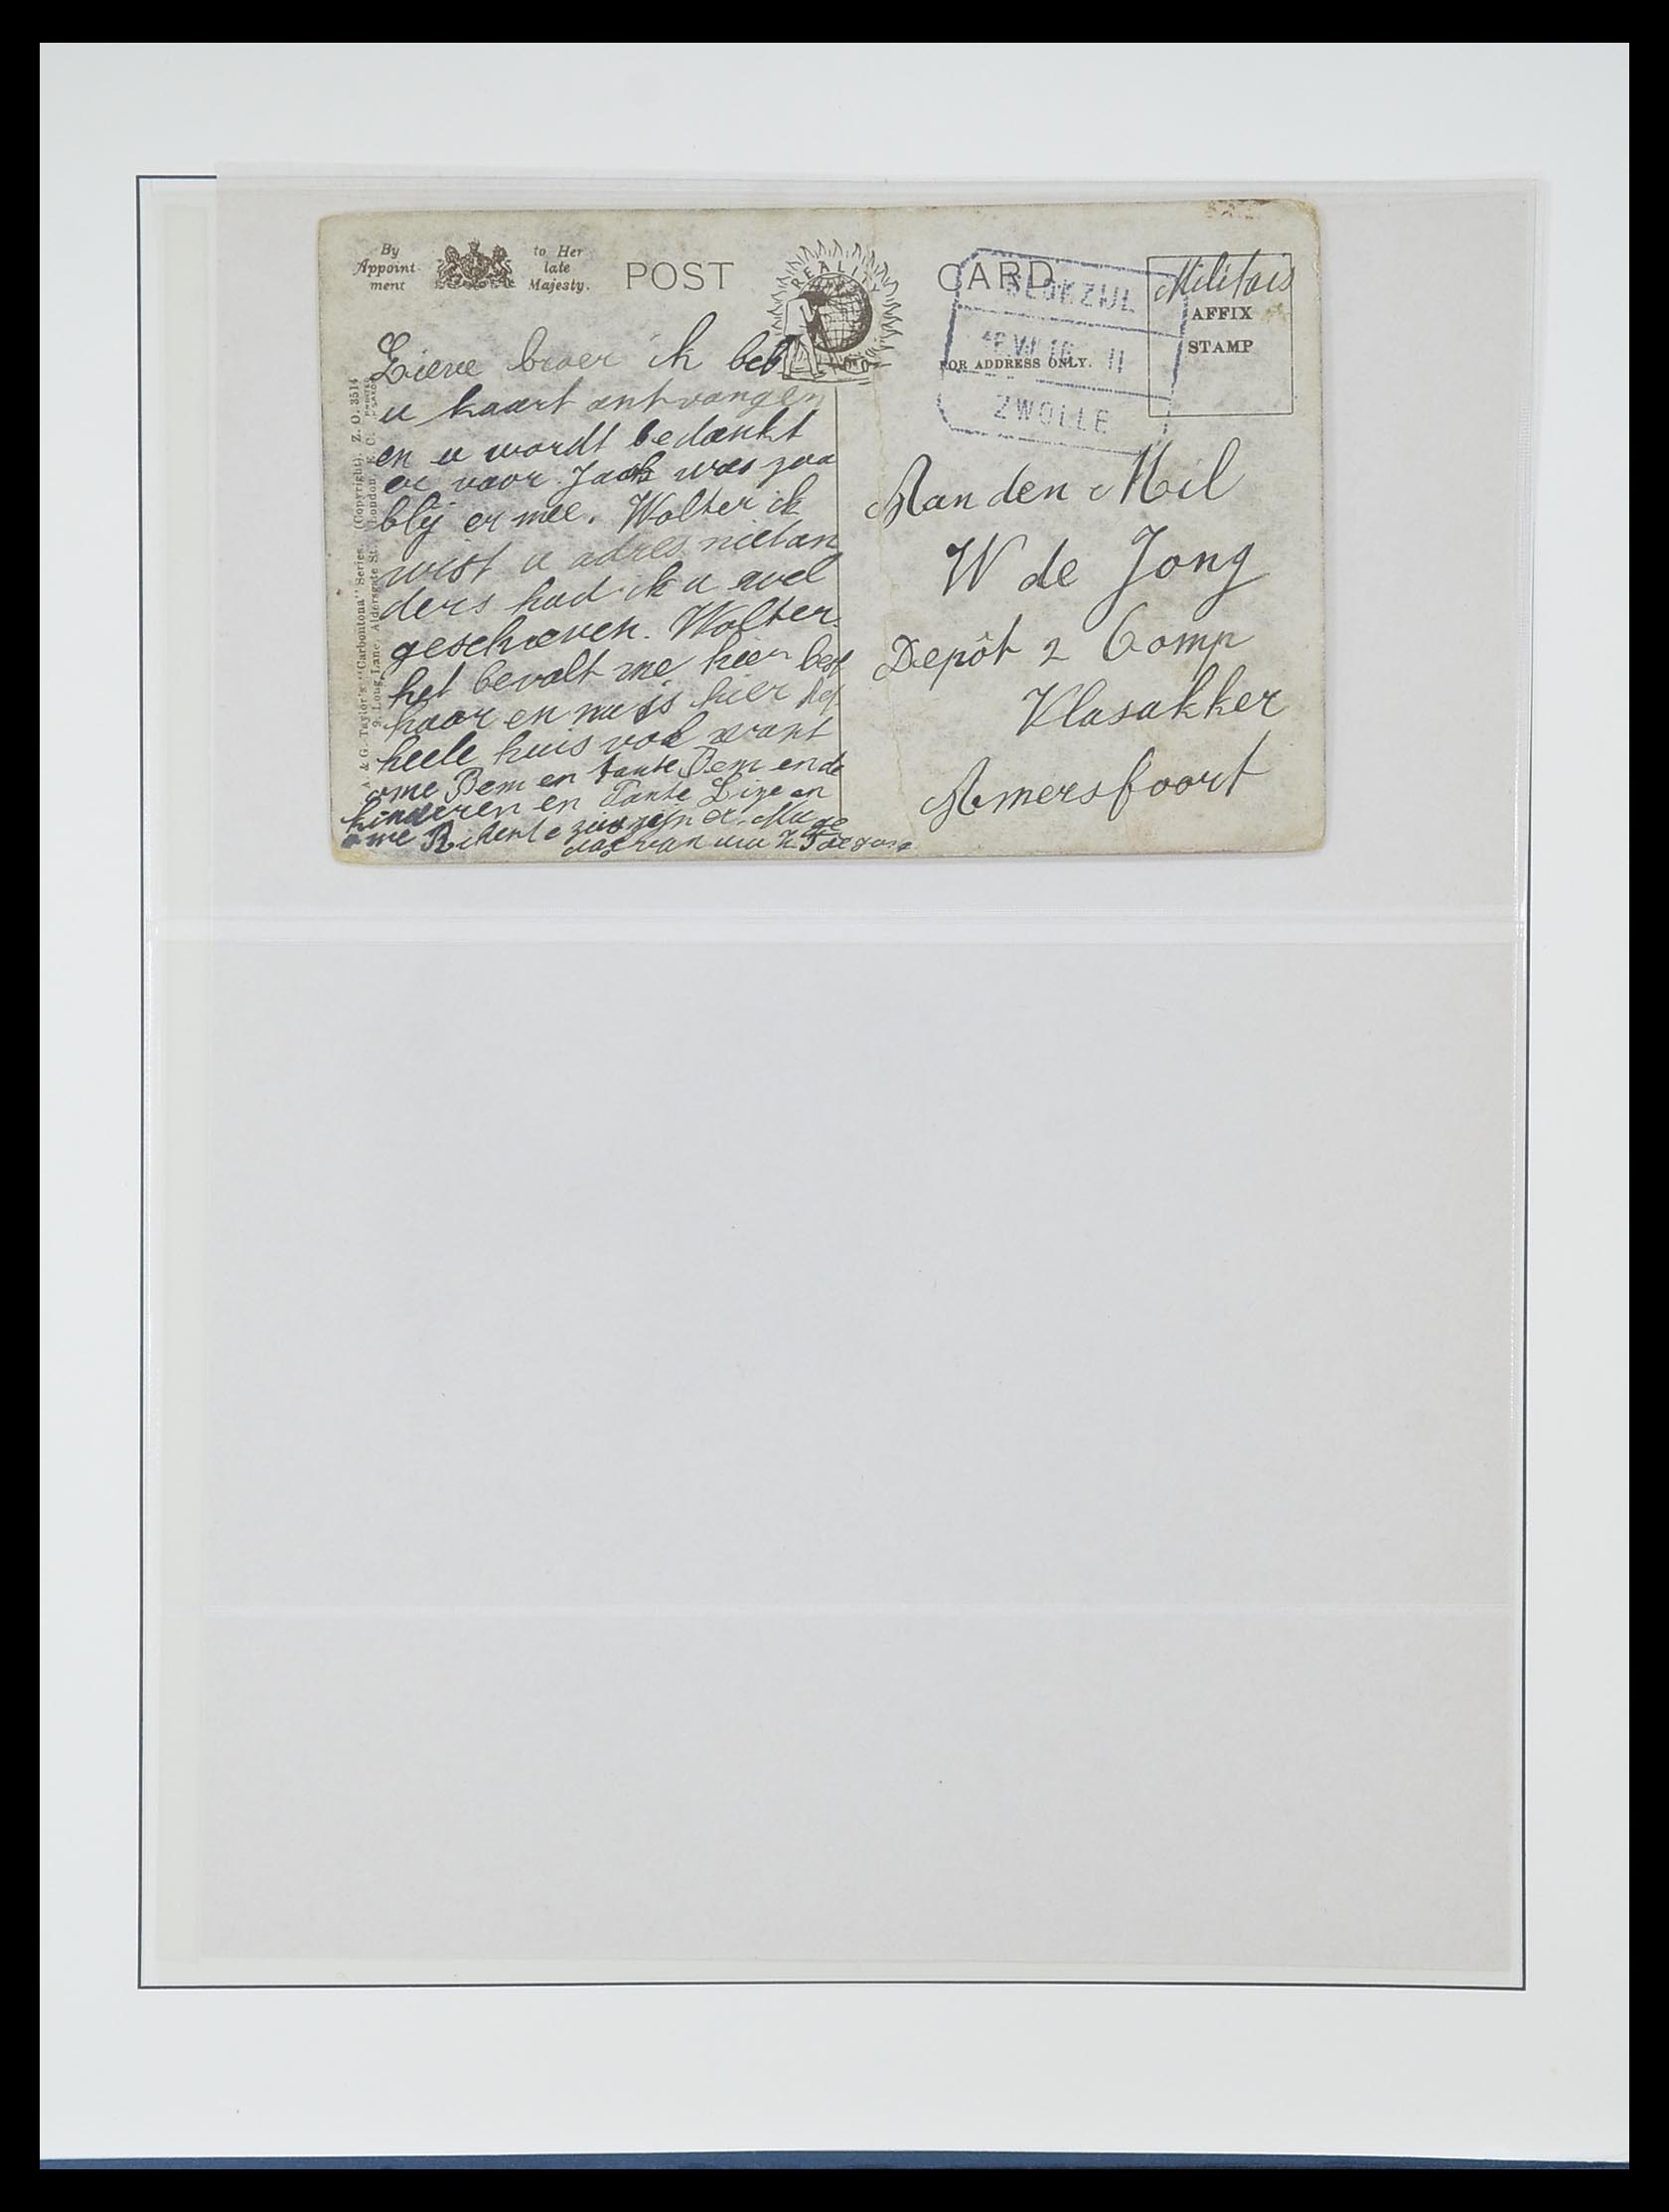 By
Appoint-
ment
to Her
late
Majesty.
POST
CARD
REALITY
Militair
AFFIX
STAMP
BLOKZIJL
ZWOLLE
FOR ADDRESS ONLY.
A. & G. Taylor's "Carbontona" Series. (Copyright). Z. O. 3514
9, Long Lane, Aldersgate St., London, E. C.
Lieve broer ik heb
u kaart ontvangen
en u wordt bedankt
er voor. Jacob was zoo
blij er mee. Wolter ik
wist u adres niet an
ders had ik u wel
geschreven. Wolter
het bevalt me hier best
hoor en nu is hier het
heele huis vol want
ome Bem en tante Bem en de
kinderen en Tante Lize en
ome
dag van uw
Aan den Mil
W de Jong
Depôt 2 Comp
Vlasakker
Amersfoort